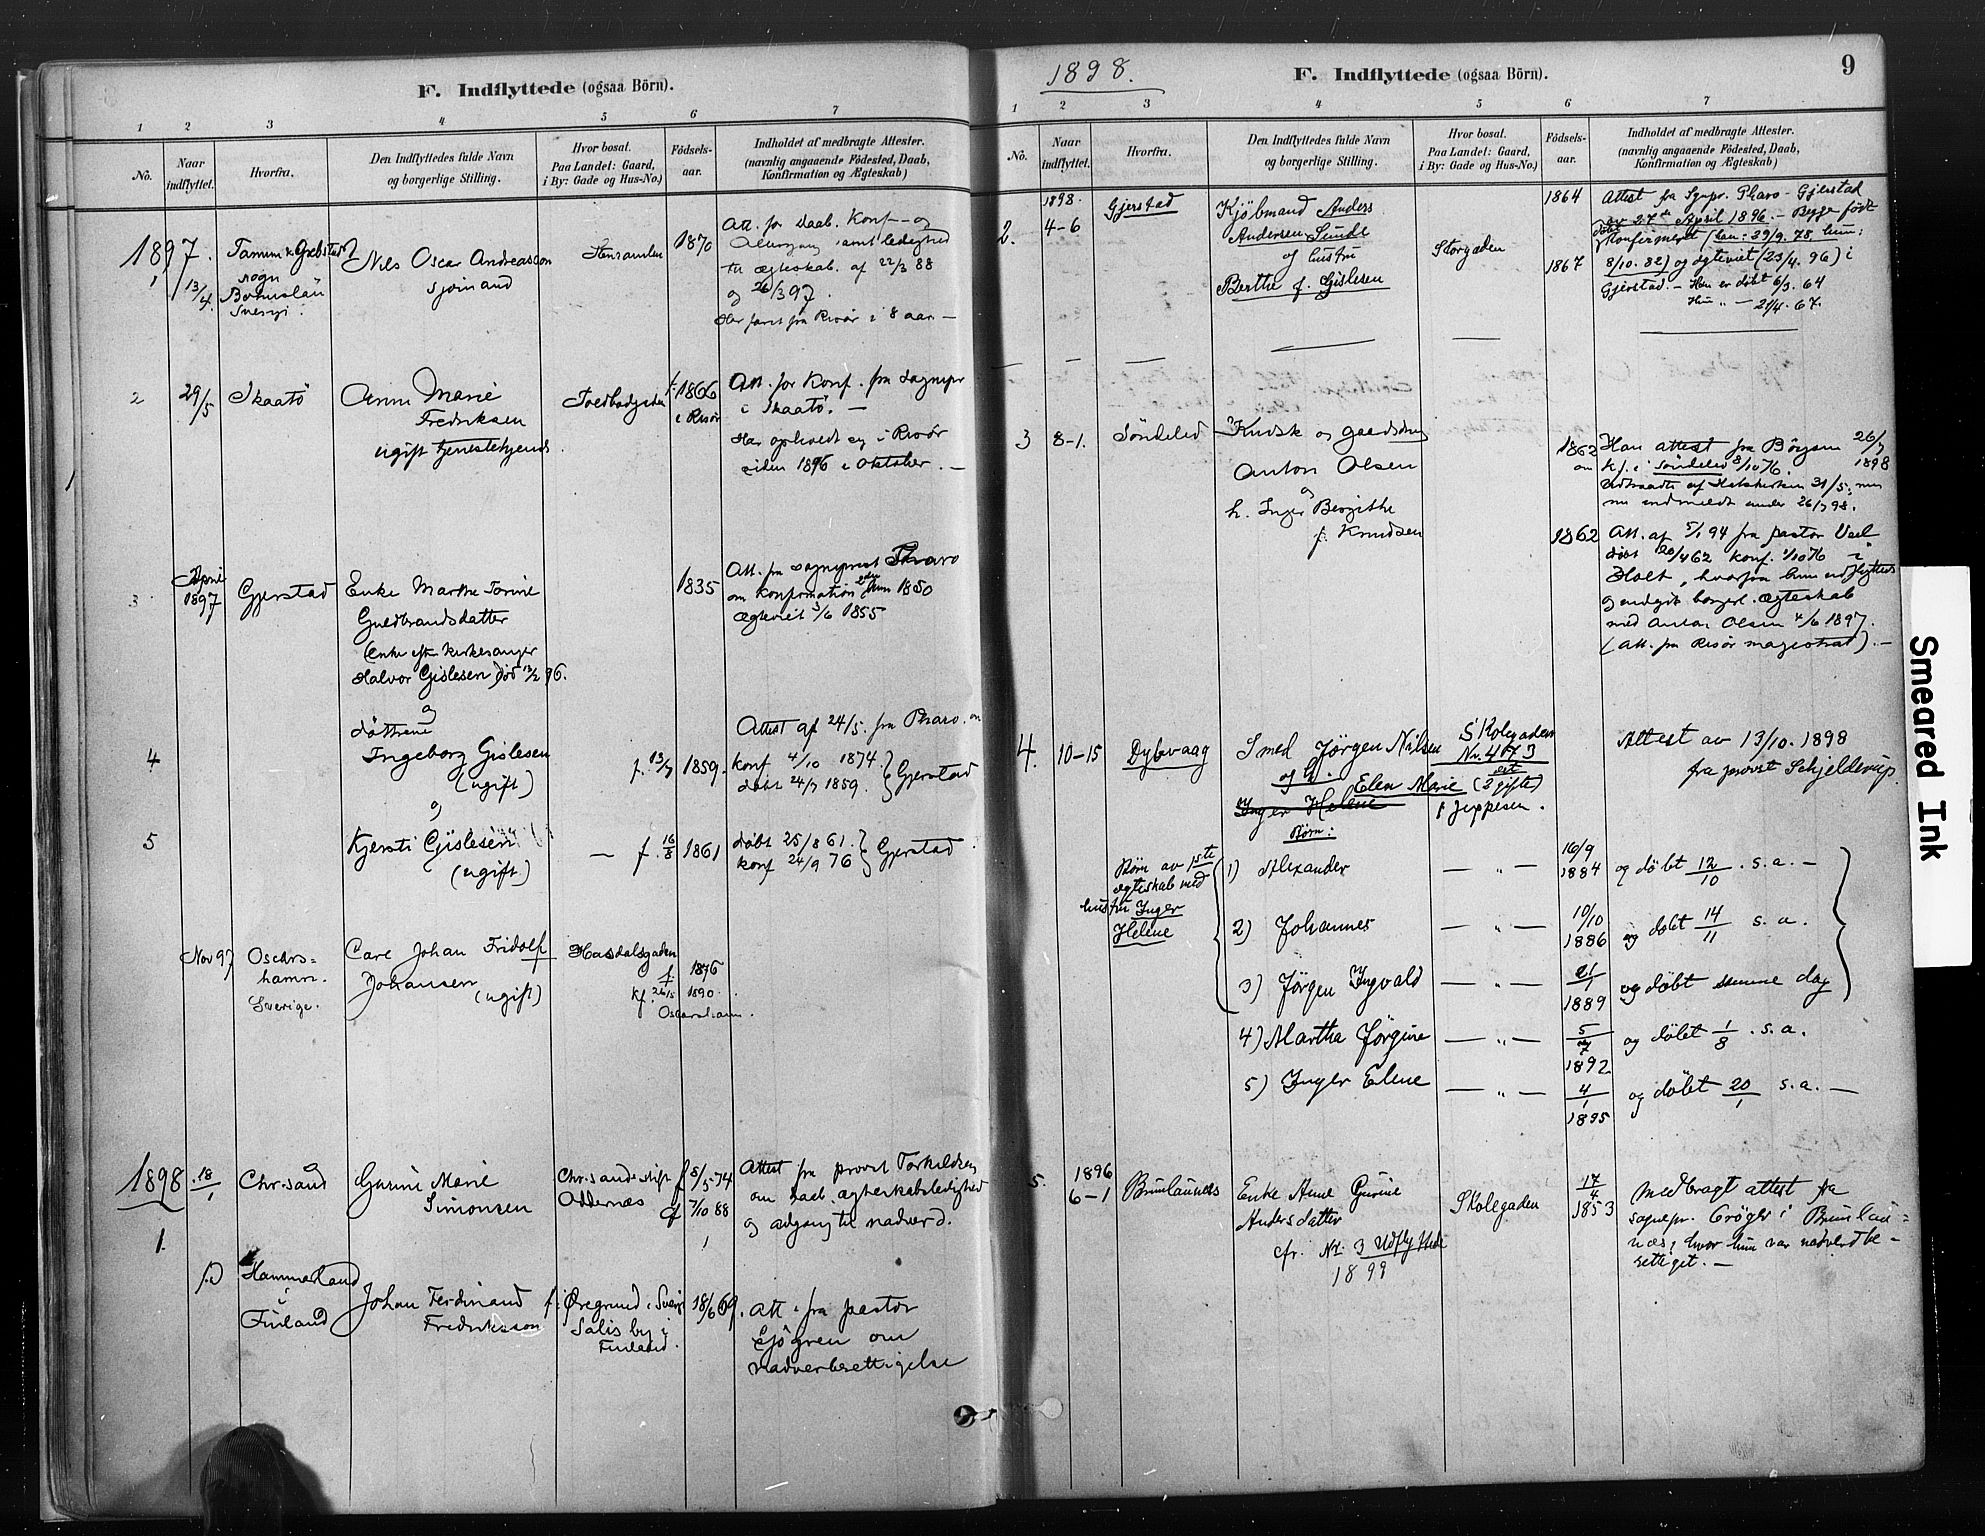 F. Indflyttede (ogsaa Börn).
1 2 3 4 5 6 7
No.
Naar indflyttet.
Hvorfra.
Den Indflyttedes fulde Navn
og borgerlige Stilling.
Hvor bosat.
Paa Landet: Gaard,
i By: Gade og Hus-No.)
Födsels-
aar.
Indholdet af medbragte Attester.
(navnlig angaaende Födested, Daab,
Konfirmation og Ægteskab)
1897.
1
13/4
sogn
Nils Oscar Andreasson
sjømand
1870
Att. for Daab. Konf- og
til ægteskab. af 22/3 88
og 26/3 97.
fra Risør i 8 aar -
2
29/5
Skaatö
Anne Marie
Fredriksen
ugift tjenestetjende
Toldbodgaden
f. 1866
i Risør
Att. for Konf. fra sognepr
i Skaatö. -
Har opholdt sig i Risør
siden 1896 i Oktober. -
3
April
1897
Gjerstad
Enke Marthe Torine
Guldbrandsdatter
(enke efter kirkesanger
Halvor Gislesen død 13/2 96.
1835
Att. fra sogneprest Pharo
om Konfirmation 1850
ægteviet 3/6 1855
og
døttrene
4
Ingeborg Gislesen
(ugift)
f. 13/7
1859.
Attest af 24/5. fra Pharo. om
konf 4/10 1874.
døbt 24/7 1859.
Gjerstad
og
5
Kjersti Gislesen
(ugift)
— f. 16/8
1861
døbt 25/8 61.
konf 24/9 76
Gjerstad
Nov 97
Oscars=
hamn.
Sverige.
Carl Johan Fridolf
Johansen
(ugift)
Hasdalsgaden
f. 1876
kf. 26/5 1890.
Oscarshamn.
1898
1.
18/1
Chr.sand
Gurine Marie
Simonsen
Chr.sands stift
Oddernæs
f 8/5 74
cf 7/10 88
Attest fra provst Torkildsen
om daab. ægteskabsledighed
og adgang til nadverd.
Hammarland
i
Finland
Johan Ferdinand
Fredriksson
f. Øregrund i Sverig
Salis by i
Finland.
18/6 69.
Att. fra pastor
Sjögren om
nadverberettigelse
1898.
F. Indflyttede (ogsaa Börn).
9
1 2 3 4 5 6 7
No.
Naar
indflyttet.
Hvorfra.
Den Indflyttedes fulde Navn
og borgerlige Stilling.
Hvor bosat.
Paa Landet: Gaard,
i By: Gade og Hus-No.)
Födsels-
aar.
Indholdet af medbragte Attester.
(navnlig angaaende Födested, Daab,
Konfirmation og Ægteskab)
2.
1898.
4-6
Gjerstad
Kjøbmand Anders
Andersen Sunde
og hustru
Berthe f. Gislesen
Storgaden
1864
1867
Attest fra Sgnpr. Pharo - Gjerstad
av 27de April 1896. - Begge født
døbt Konfirmeret (han: 29/9. 78, hun:
8/10. 82) og ægteviet (23/4. 96) i
Gjerstad. - Han er døbt 6/3. 64
Hun „ — 21/4. 67.
3
8-1.
Söndeled
Kudsk og gaardsdreng
Anton Olsen
og
h. Inger Bergithe
f. Knudsen
1862
1862
Han attest fra Börjesen 26/7
1898
kf. i Söndeled 8/10 76.
Udtraadte af Statskirken 31/5, men
nu indmeldt under 26/7 98.
Att. af 5/1 94 fra pastor
døbt 20/4 62 konf. 1/10 76 i
Holt, hvorfra hun udflyttede
og indgik borgerl. ægteskab
med Anton Olsen 4/6 1897.
(att. fra Risør magistrat). -
4.
10-15
Dybvaag
Smed Jørgen Nilsen
og h.
Elen Marie (2 gift)
Inger Helene
f Jeppesen.
Børn:
Skolegaden
Nr. 473
Attest av 13/10. 1898
fra provst Schjelderup
Børn av 1ste
ægteskab med
hustru Inger
Helene
1) Alexander
— „ —
16/9
1884
og døbt 12/10. s.a. -
2) Johannes
— „ —
10/10
1886
og døbt 14/11 s. a.
3) Jørgen Ingvald
— „ —
21/1
1889
og døbt samme dag
4) Martha Jørgine
— „ —
5/7
1892
og døbt 1/8. s.a.
5) Inger Elene
— „ —
4/1
1895
og døbt 20/1 s.a. —
5.
1896
6-1
Brunlanæs
Enke Anne Gurine
Andersdatter
cfr. Nr. 3 Udflyttede
1899
Skolegaden
17/4
1853
Medbragt attest fra
sognepr. Crøger i Brunlan=
næs, hvor hun var nadverdbe-
rettiget. -
Smeared Ink